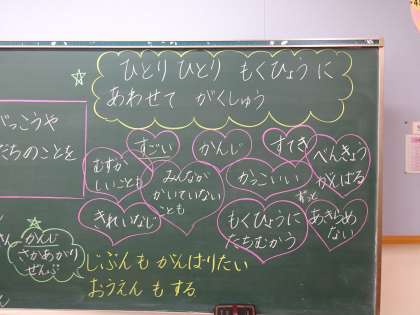 ひとり ひとり もくひょう に
あわせて がくしゅう
がっこうや
たちのことを
すごい
かんじ
すてき
むずか
しいことも
みんなが
かいていない
ことも
かっこいい
べんきょう
がんばる
きれいなじ
もくひょうに
たちむかう
ずっと
あきらめ
ない
さん
かんじ
さかあがり
ぜんぶ
じぶん も がんばりたい
おうえん も する